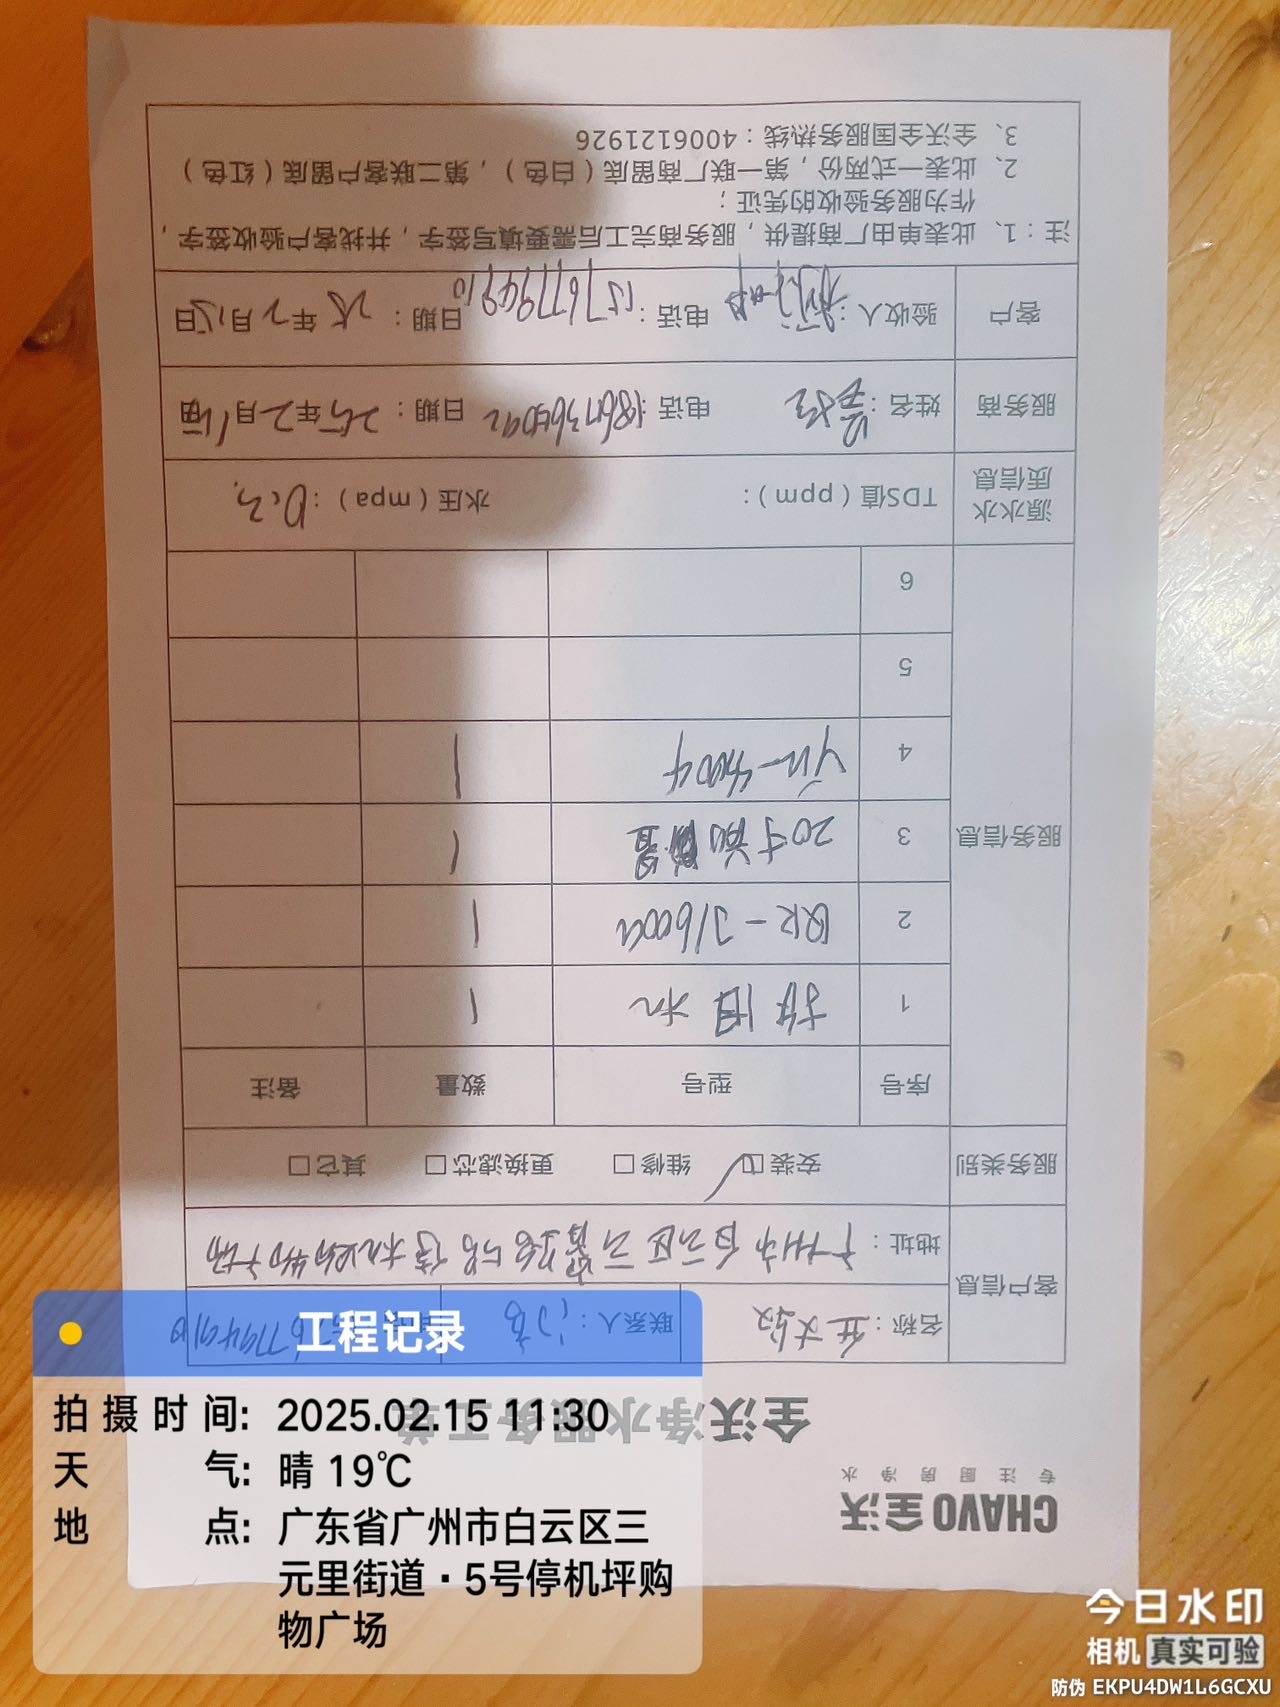 CHAVO全沃
专注厨房净水
全沃净水服务工单
客户信息
名称：
联系人：
地址：广州市白云区云霄路5号停机坪购物广场
服务类别
安装☑ 维修□ 更换滤芯□ 其它□
服务信息
序号 型号 数量 备注
1 机 1
2 QR-J1600G 1
3 20寸 1
4 1
5
6
源水水质信息
TDS值（ppm）： 水压（mpa）：0.3
服务商
姓名： 电话： 日期：25年2月15日
客户
验收人： 电话：15767794910 日期：25年2月15日
注：1、此表单由厂商提供，服务商完工后需要填写签字，并找客户验收签字，
作为服务验收的凭证；
2、此表一式两份，第一联厂商留底（白色），第二联客户留底（红色）
3、全沃全国服务热线：4006121926
工程记录
拍摄时间: 2025.02.15 11:30
天气: 晴 19℃
地点: 广东省广州市白云区三
元里街道·5号停机坪购
物广场
今日水印
相机 真实可验
防伪 EKPU4DW1L6GCXU